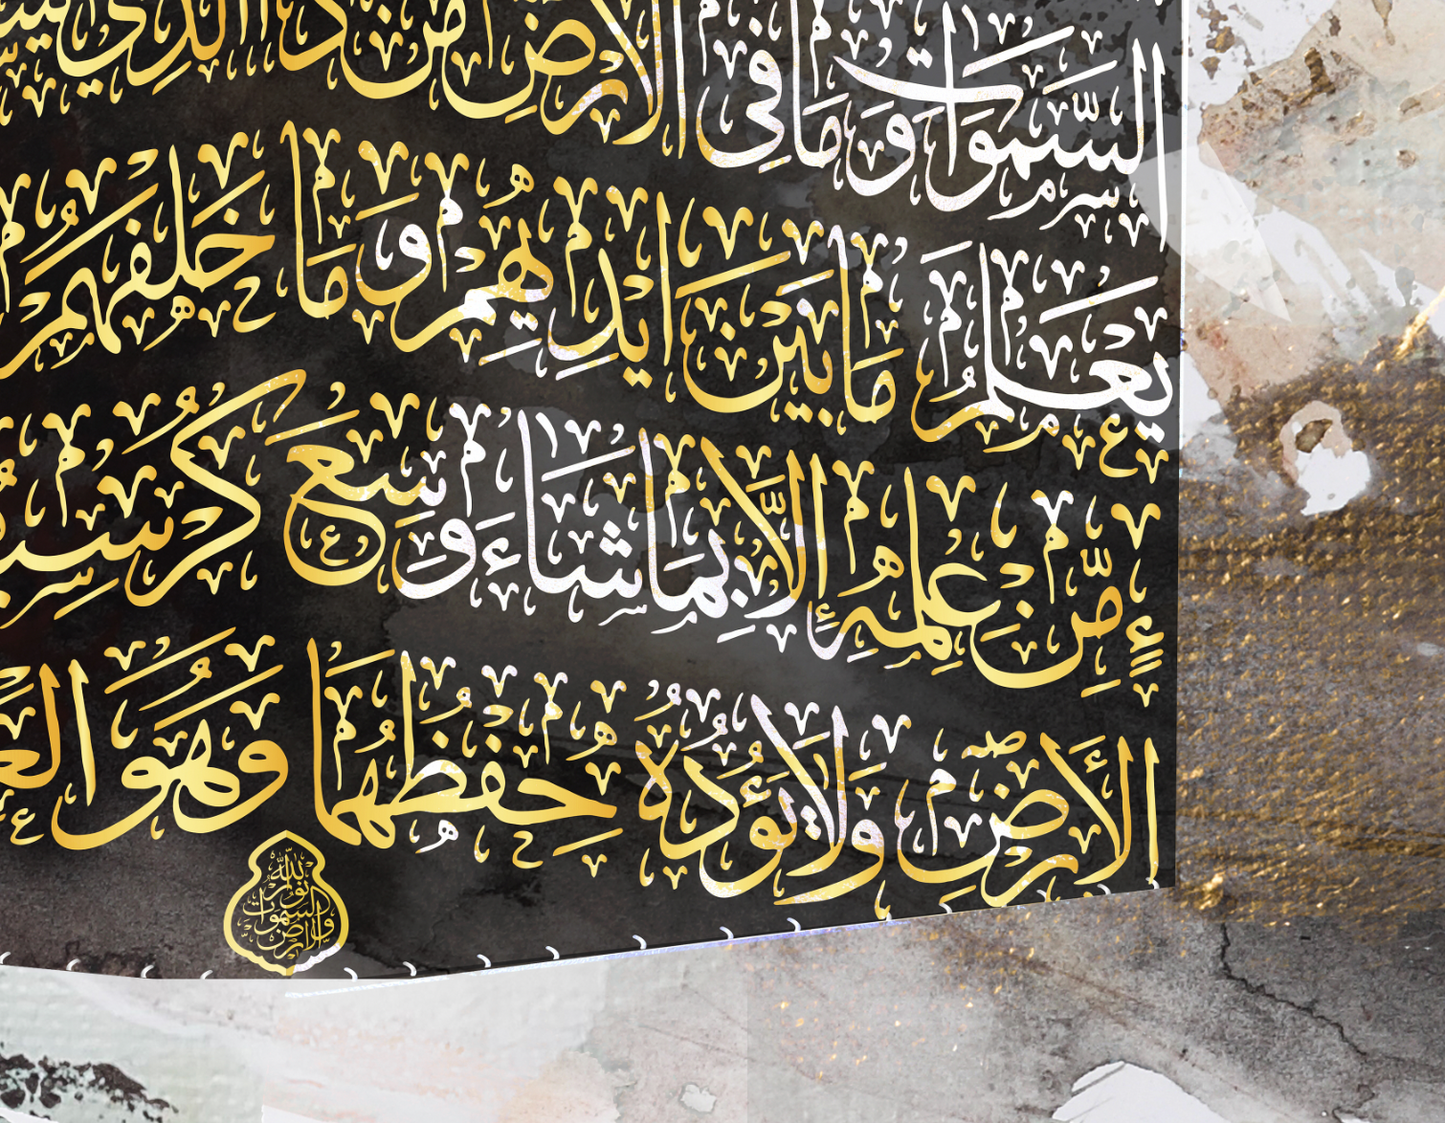 السَّمٰوَاتِ وَمَا فِي الْاَرْضِ مَنْ ذَا الَّذِي
يَعْلَمُ مَا بَيْنَ اَيْدِيهِمْ وَمَا خَلْفَهُمْ
مِنْ عِلْمِهِ اِلَّا بِمَا شَاءَ وَسِعَ كُرْسِيُّ
الْاَرْضَ وَلَا يَؤُدُهُ حِفْظُهُمَا وَهُوَ
الله نور السموات والارض